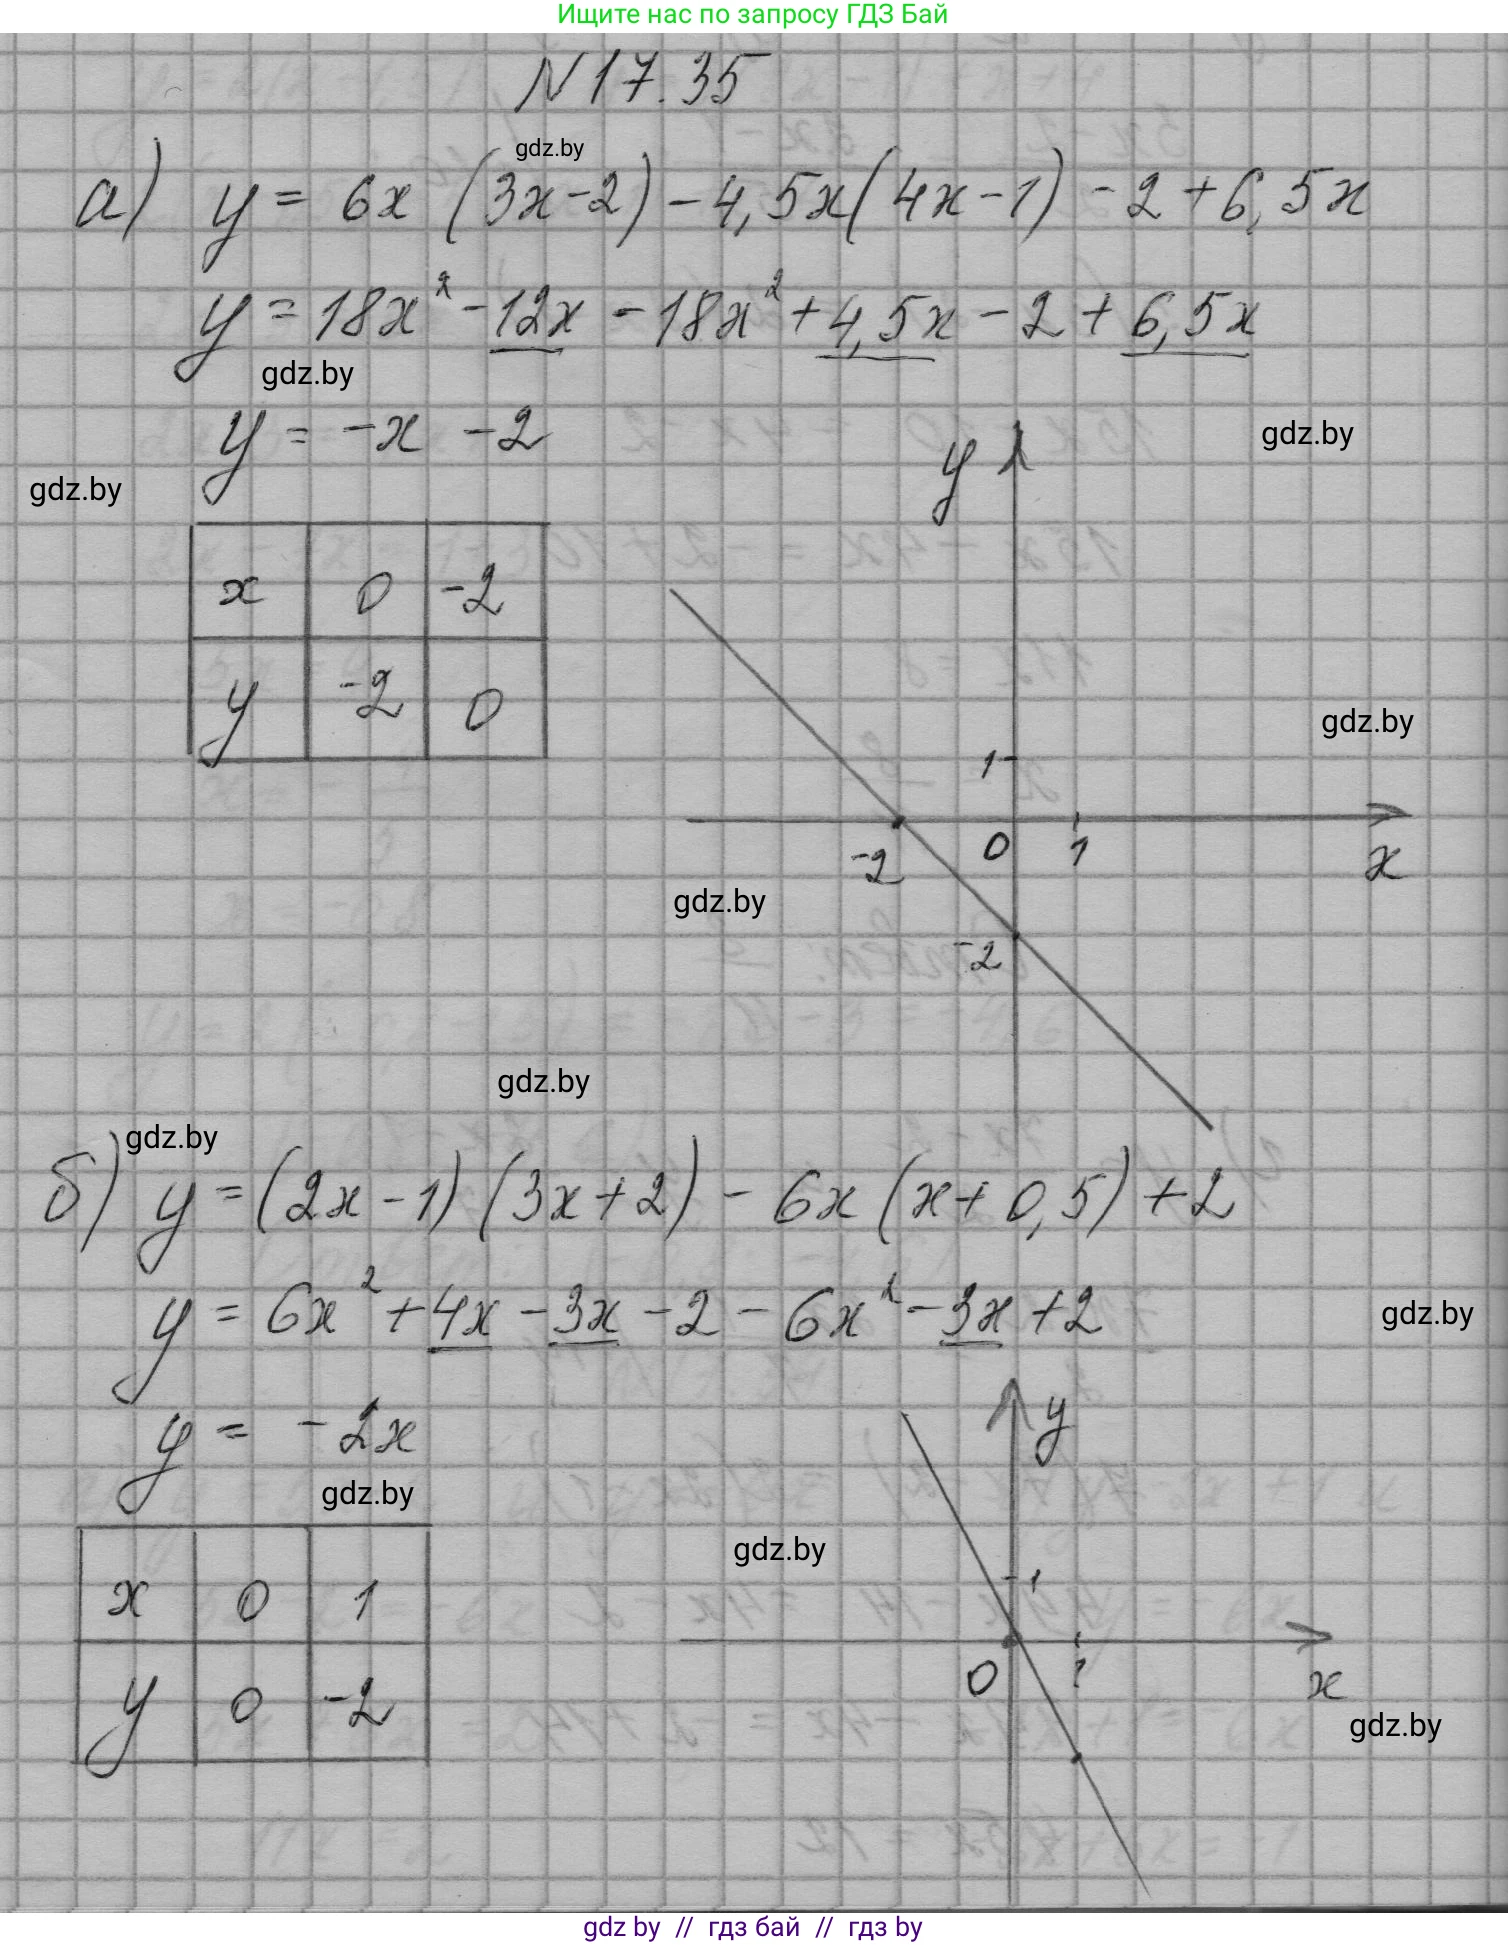 Ищите нас по запросу ГДЗ Бай
N17.35
gdz.by
а) y = 6x (3x-2) - 4,5x(4x-1) - 2 + 6,5x
y = 18x² - 12x - 18x² + 4,5x - 2 + 6,5x
gdz.by
y = -x - 2
gdz.by
gdz.by
y
x 0 -2
y -2 0
gdz.by
1
-2 0 1 x
gdz.by
-2
gdz.by
gdz.by
б) y = (2x-1) (3x+2) - 6x (x+0,5) + 2
y = 6x² + 4x - 3x - 2 - 6x² - 3x + 2
gdz.by
y = -2x
y
gdz.by
gdz.by
x 0 1
y 0 -2
1
0 1 x
gdz.by
gdz by // гдз бай // гдз by